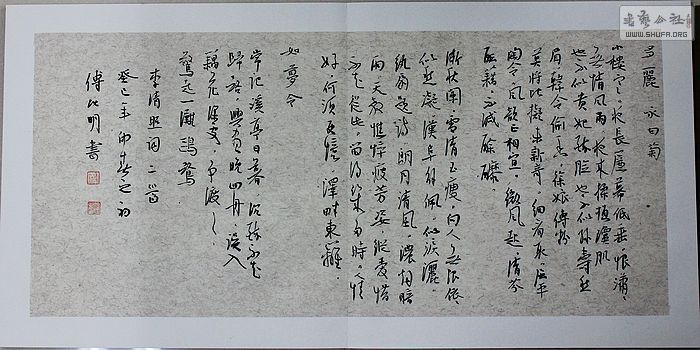 多麗 詠白菊
小樓寒夜長簾幕低垂恨蕭蕭
無情風雨夜來揉損瓊肌
也不似貴妃醉臉也不似孫壽愁
眉韓令偷香徐娘傅粉
莫將比擬未新奇細看取屈平
陶令風韻正相宜微風起清芬
醞藉不減酴醾
漸秋闌雪清玉瘦向人無限依依
似愁凝漢皋解佩似淚灑
紈扇題詩朗月清風濃烟暗
雨天教憔悴度芳姿縱愛惜
不知從此留得幾多時人情
好何須更憶澤畔東籬
如夢令
常記溪亭日暮沉醉不知
歸路興盡晚回舟誤入
藕花深處爭渡々
驚起一灘鷗鷺
李清照詞二首
癸巳年仲春之初
傅以明書
书艺公社
WWW.SHUFA.ORG